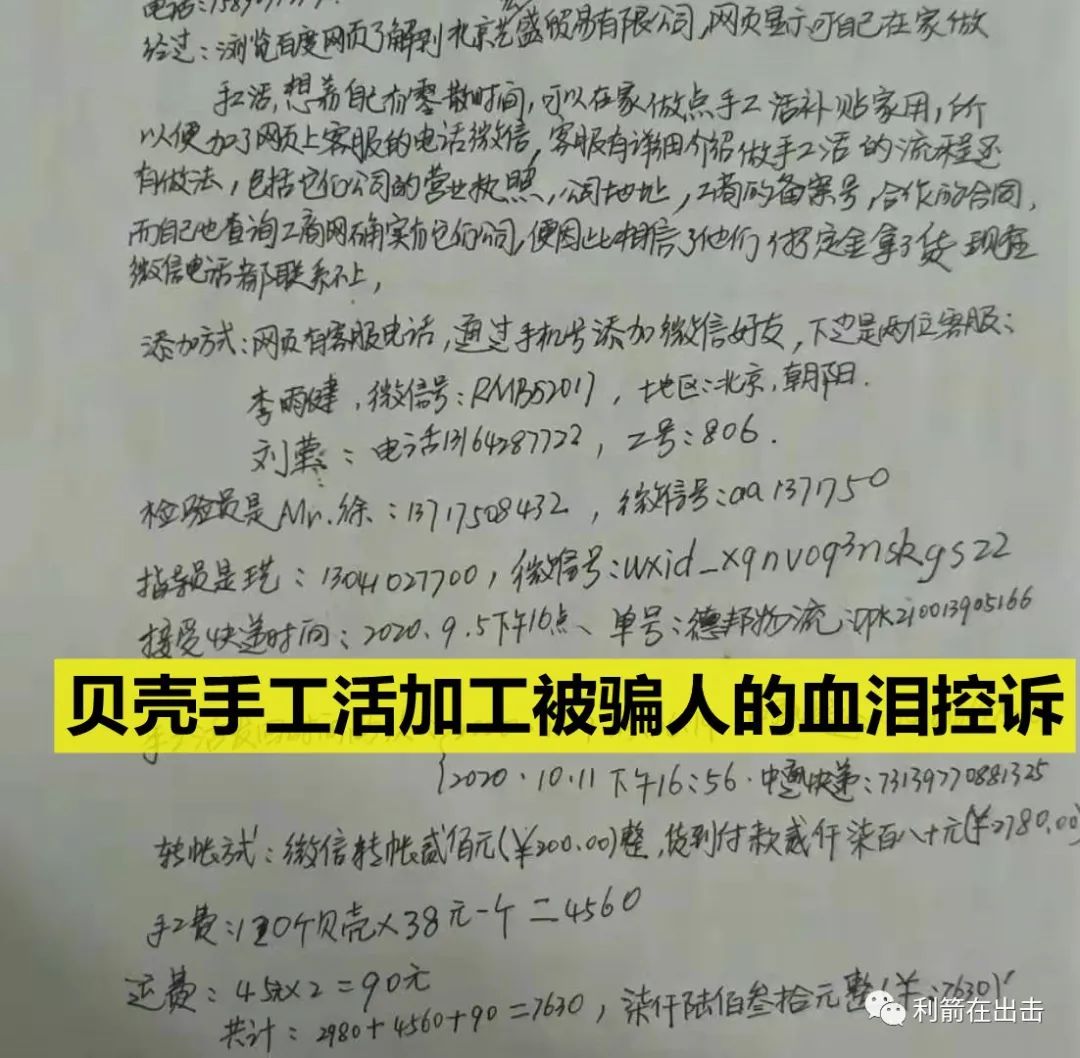 电话:1589
经过:浏览百度网页了解到北京艺盛贸易有限公司,网页显示可自己在家做
手工活,想着自己有零散时间,可以在家做点手工活补贴家用,所
以便加了网页上客服的电话微信,客服有详细介绍做手工活的流程还
有做法,包括它们公司的营业执照,公司地址,工商的备案号,合作的合同,
而自己也查询工商网确实有它们公司,便因此相信了他们付了定金拿了货 现在
微信电话都联系不上,
添加方式:网页有客服电话,通过手机号添加微信好友,下边是两位客服:
李雨健,微信号:RMBS2017,地区:北京,朝阳.
刘莹:电话13164287722,工号:806.
检验员是Mr.徐:13717508432,微信号:aa1371750
指导员是艺:13041027700,微信号:wxid_xqnvoq3nskgs22
接受快递时间:2020.9.5下午16点、单号:德邦物流:DPK210013905166
贝壳手工活加工被骗人的血泪控诉
2020.10.11下午16:56.中通快递:73139770881325
转帐方式:微信转帐贰佰元(¥200.00)整,货到付款贰仟柒百八十元(¥2780.00)
手工费:120个贝壳×38元一个=4560
运费:45元×2=90元
共计:2980+4560+90=7630,柒仟陆佰叁拾元整(¥:7630)
利箭在出击